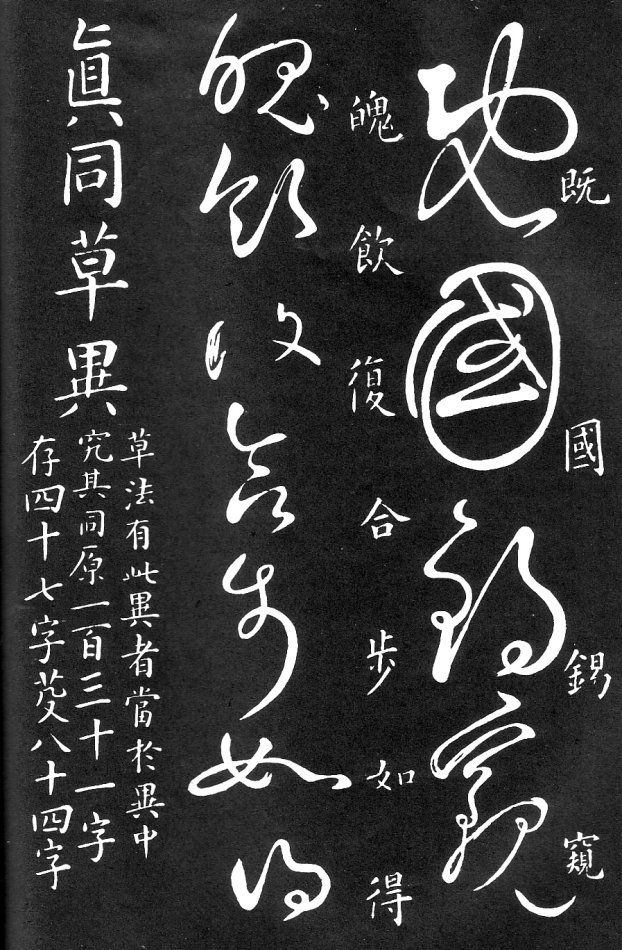 既
國
錫
窺
魄
飲
復
合
步
如
得
眞同草異
草法有此異者當於異中
究其同原一百三十一字
存四十七字芟八十四字